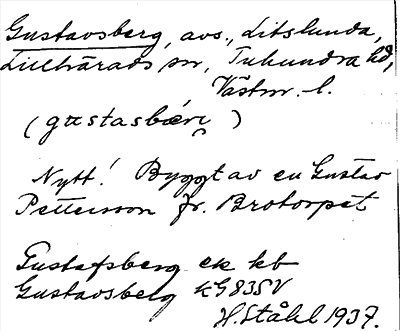 Gustavsberg, avs., Litslunda,
Lillhärads sn, Tuhundra hd,
Västm. l.
(gustasbærj)
Nytt! Byggt av en Gustav
Pettersson fr. Brotorpet
Gustafsberg ek kb
Gustavsberg KG 83SV
H. Ståhl 1937.